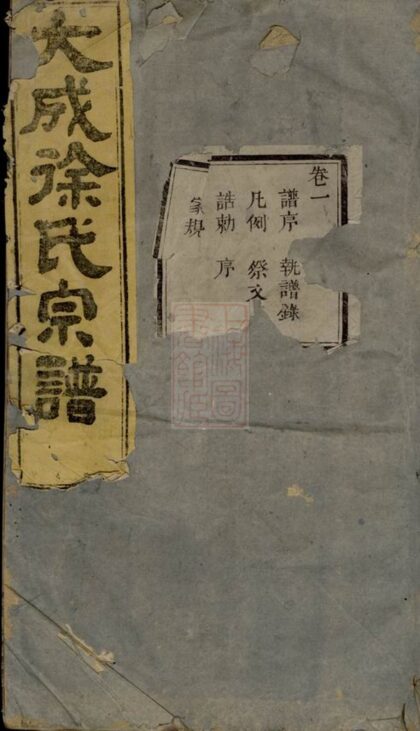 大成徐氏宗譜
卷一
譜序 執譜錄
凡例 祭文
誥勅 序
家規
上海圖書館藏